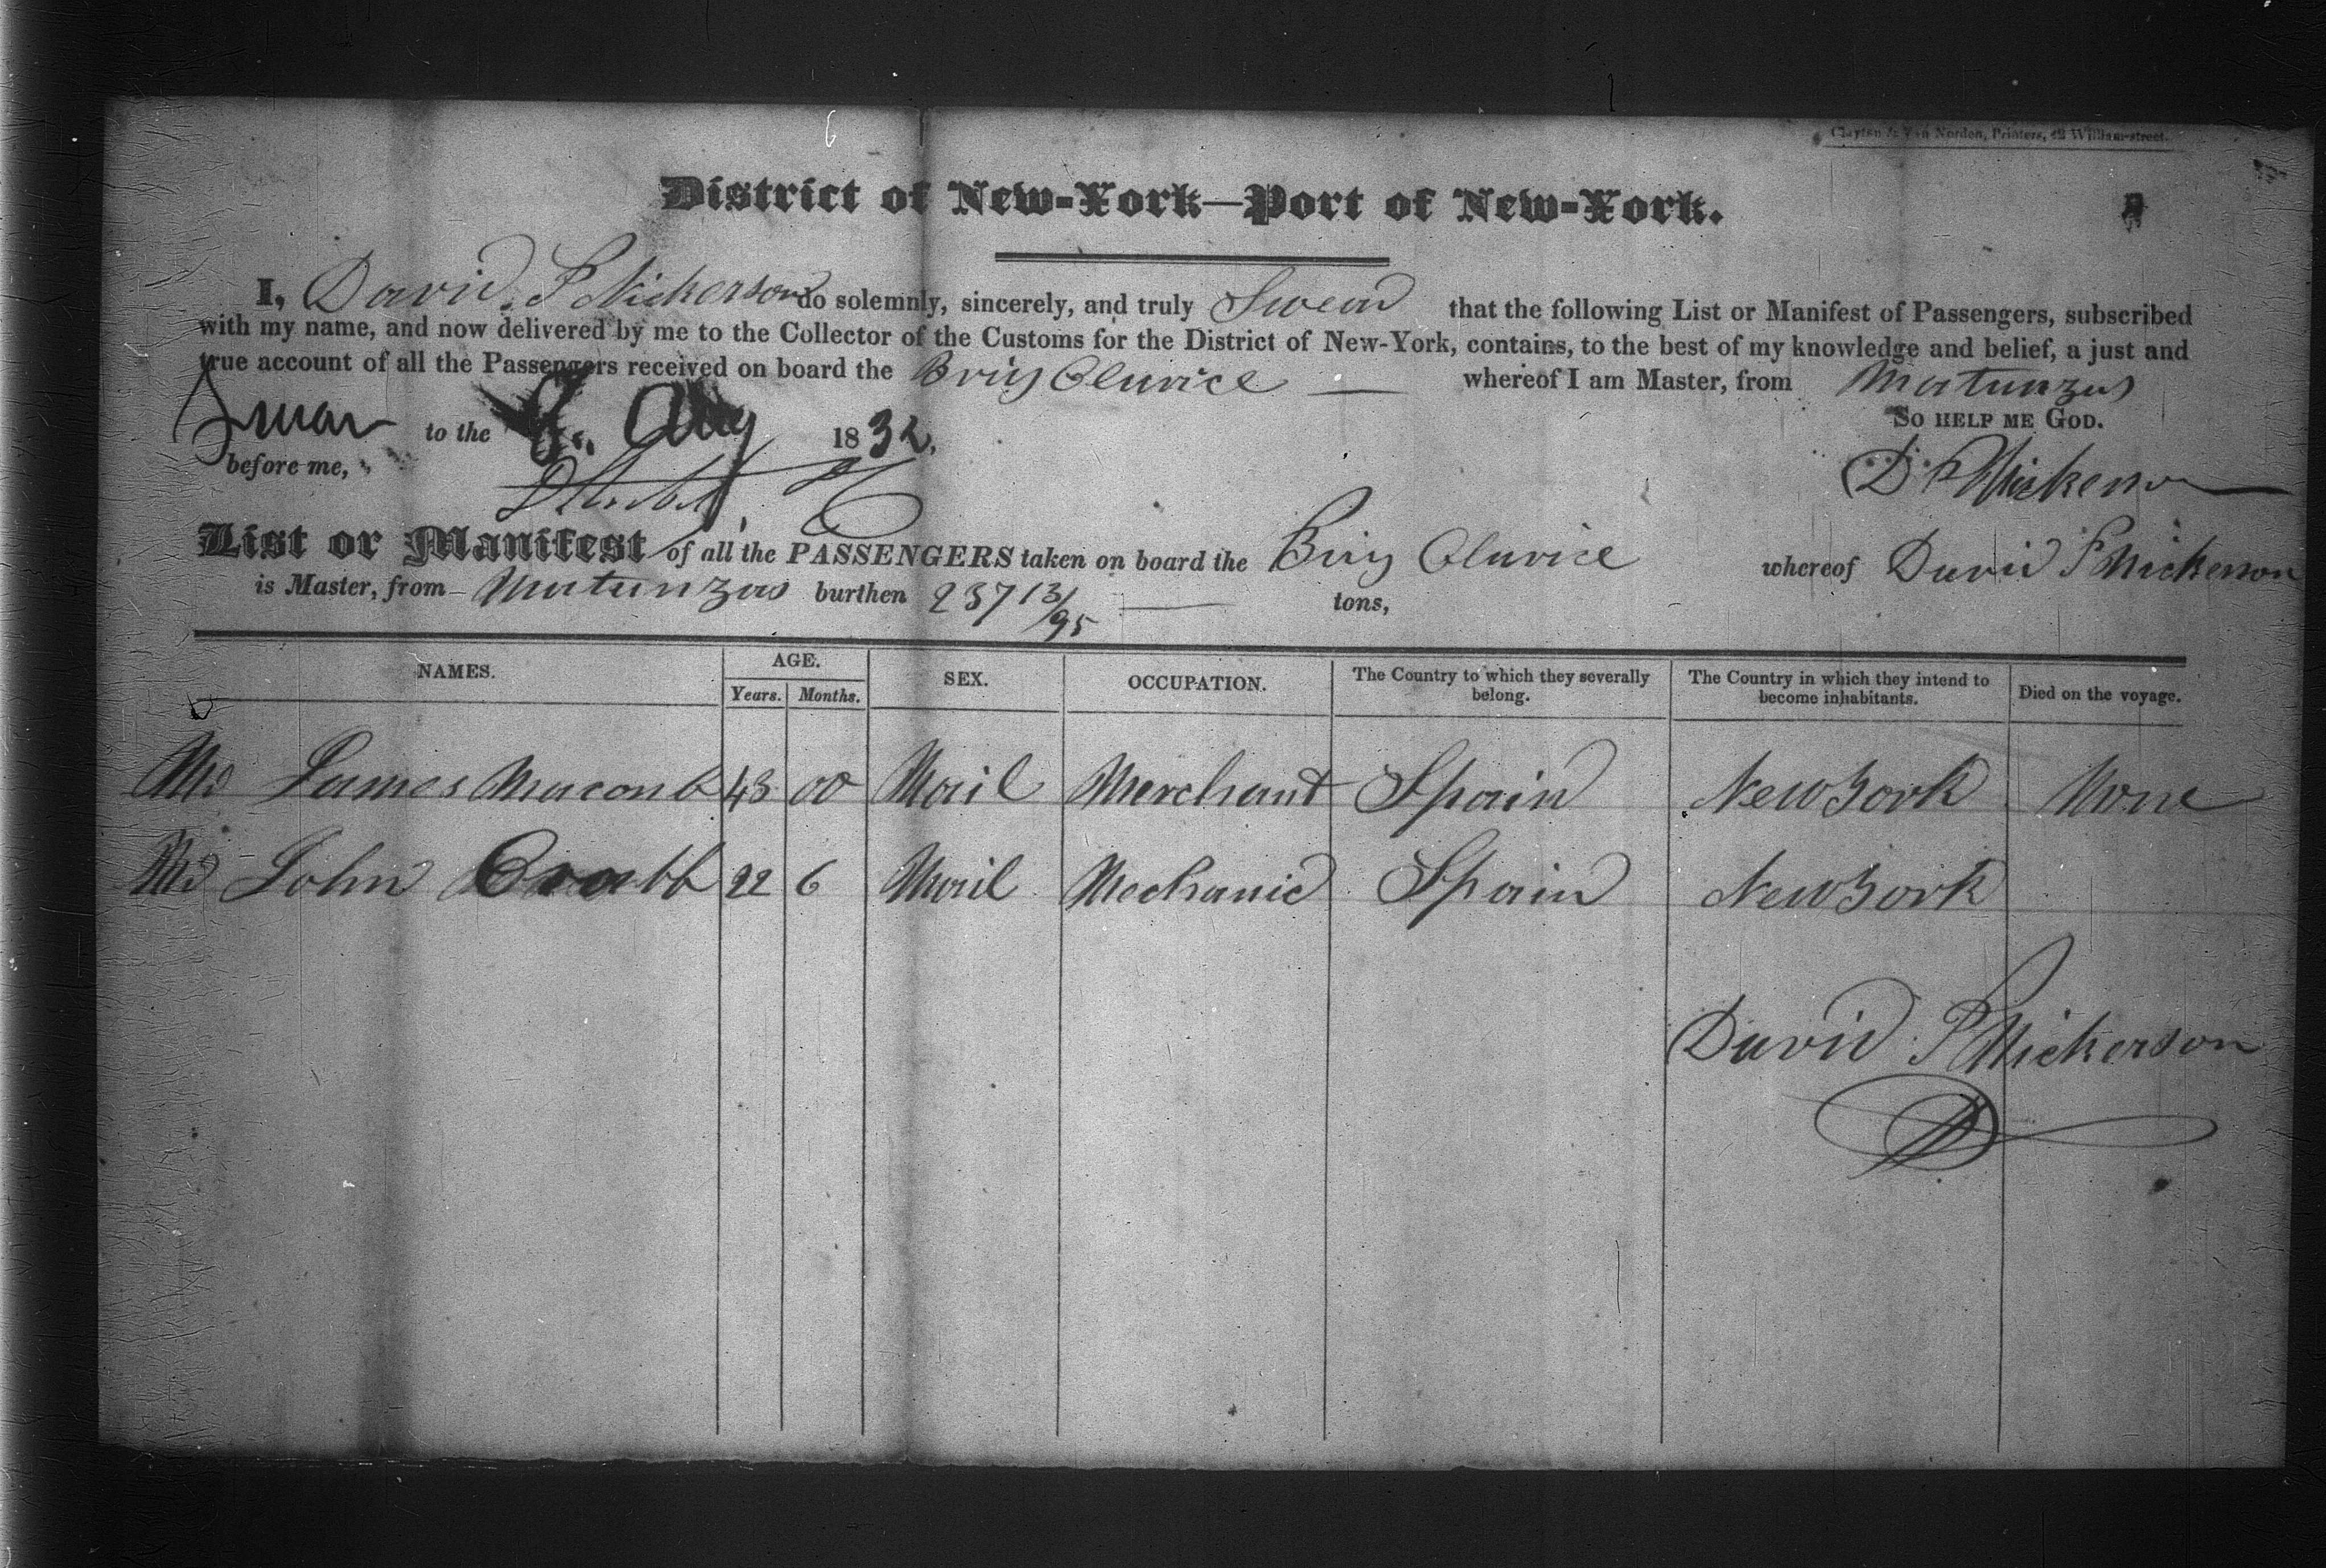 Clayton & Van Norden, Printers, 42 William-street.
District of New-York—Port of New-York.
I, David P Nickerson do solemnly, sincerely, and truly Swear that the following List or Manifest of Passengers, subscribed
with my name, and now delivered by me to the Collector of the Customs for the District of New-York, contains, to the best of my knowledge and belief, a just and
true account of all the Passengers received on board the Brig Clarice — whereof I am Master, from Matanzas
Sworn to the Aug 1832. So help me God.
before me, D P Nickerson
List or Manifest of all the PASSENGERS taken on board the Brig Clarice whereof David P Nickerson
is Master, from Matanzas burthen 237 13/95 — tons,
NAMES. AGE. SEX. OCCUPATION. The Country to which they severally belong. The Country in which they intend to become inhabitants. Died on the voyage.
Years. Months.
Mr James Macomb 43 00 Mail Merchant Spain New York None
Mr John Crabb 22 6 Mail Mechanic Spain New York
David P Nickerson